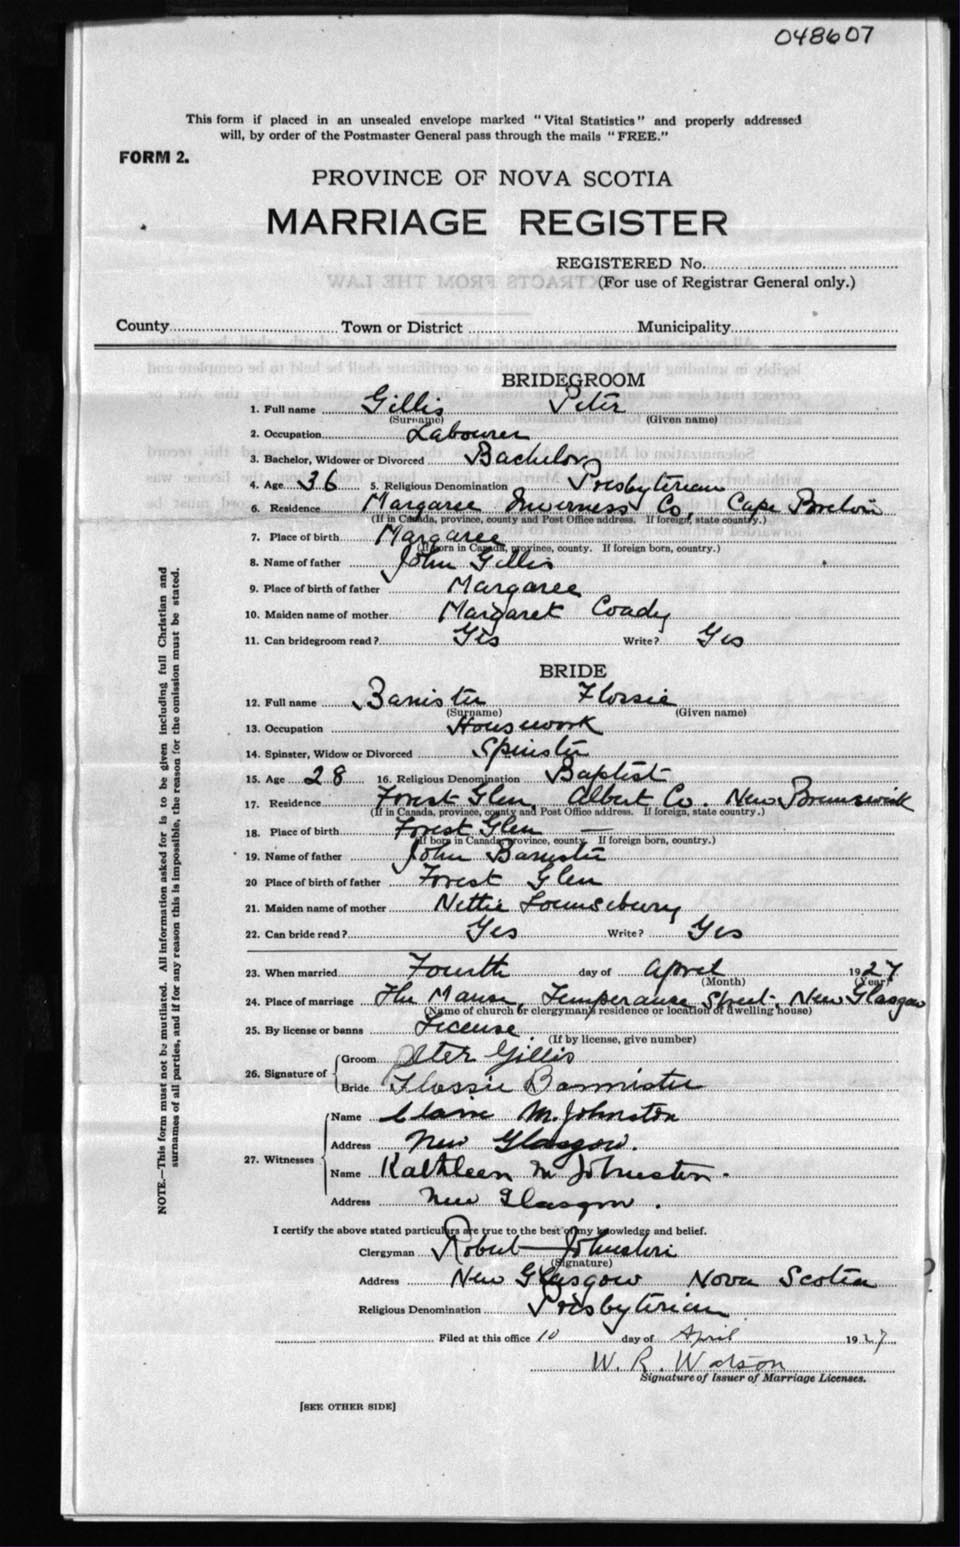 048607
This form if placed in an unsealed envelope marked "Vital Statistics" and properly addressed
will, by order of the Postmaster General pass through the mails "FREE."
FORM 2.
PROVINCE OF NOVA SCOTIA
MARRIAGE REGISTER
REGISTERED No.
(For use of Registrar General only.)
County Town or District Municipality
BRIDEGROOM
1. Full name Gillis Peter
(Surname) (Given name)
2. Occupation Labourer
3. Bachelor, Widower or Divorced Bachelor
4. Age 36 5. Religious Denomination Presbyterian
6. Residence Margaree Inverness Co, Cape Breton
(If in Canada, province, county and Post Office address. If foreign, state country.)
7. Place of birth Margaree
(If born in Canada, province, county. If foreign born, country.)
8. Name of father John Gillis
9. Place of birth of father Margaree
10. Maiden name of mother Margaret Coady
11. Can bridegroom read? Yes Write? Yes
BRIDE
12. Full name Banister Flossie
(Surname) (Given name)
13. Occupation Housework
14. Spinster, Widow or Divorced Spinster
15. Age 28 16. Religious Denomination Baptist
17. Residence Forest Glen, Albert Co. New Brunswick
(If in Canada, province, county and Post Office address. If foreign, state country.)
18. Place of birth Forest Glen —
(If born in Canada, province, county. If foreign born, country.)
19. Name of father John Banister
20 Place of birth of father Forest Glen
21. Maiden name of mother Nettie Lounsebury
22. Can bride read? Yes Write? Yes
23. When married Fourth day of April 1927
(Month) (Year)
24. Place of marriage The Manse, Temperance Street, New Glasgow
(Name of church or clergyman's residence or location of dwelling house)
25. By license or banns License.
(If by license, give number)
26. Signature of Groom Peter Gillis
Bride Flossie Bannister
27. Witnesses Name M. Johnston
Address New Glasgow.
Name Kathleen M Johnston.
Address New Glasgow.
I certify the above stated particulars are true to the best of my knowledge and belief.
Clergyman Robert Johnston
(Signature)
Address New Glasgow Nova Scotia
Religious Denomination Presbyterian
Filed at this office 10 day of April 1927
W. R. Watson
Signature of Issuer of Marriage Licenses.
[SEE OTHER SIDE]
NOTE.—This form must not be mutilated. All information asked for is to be given including full Christian and
surnames of all parties, and if for any reason this is impossible, the reason for the omission must be stated.